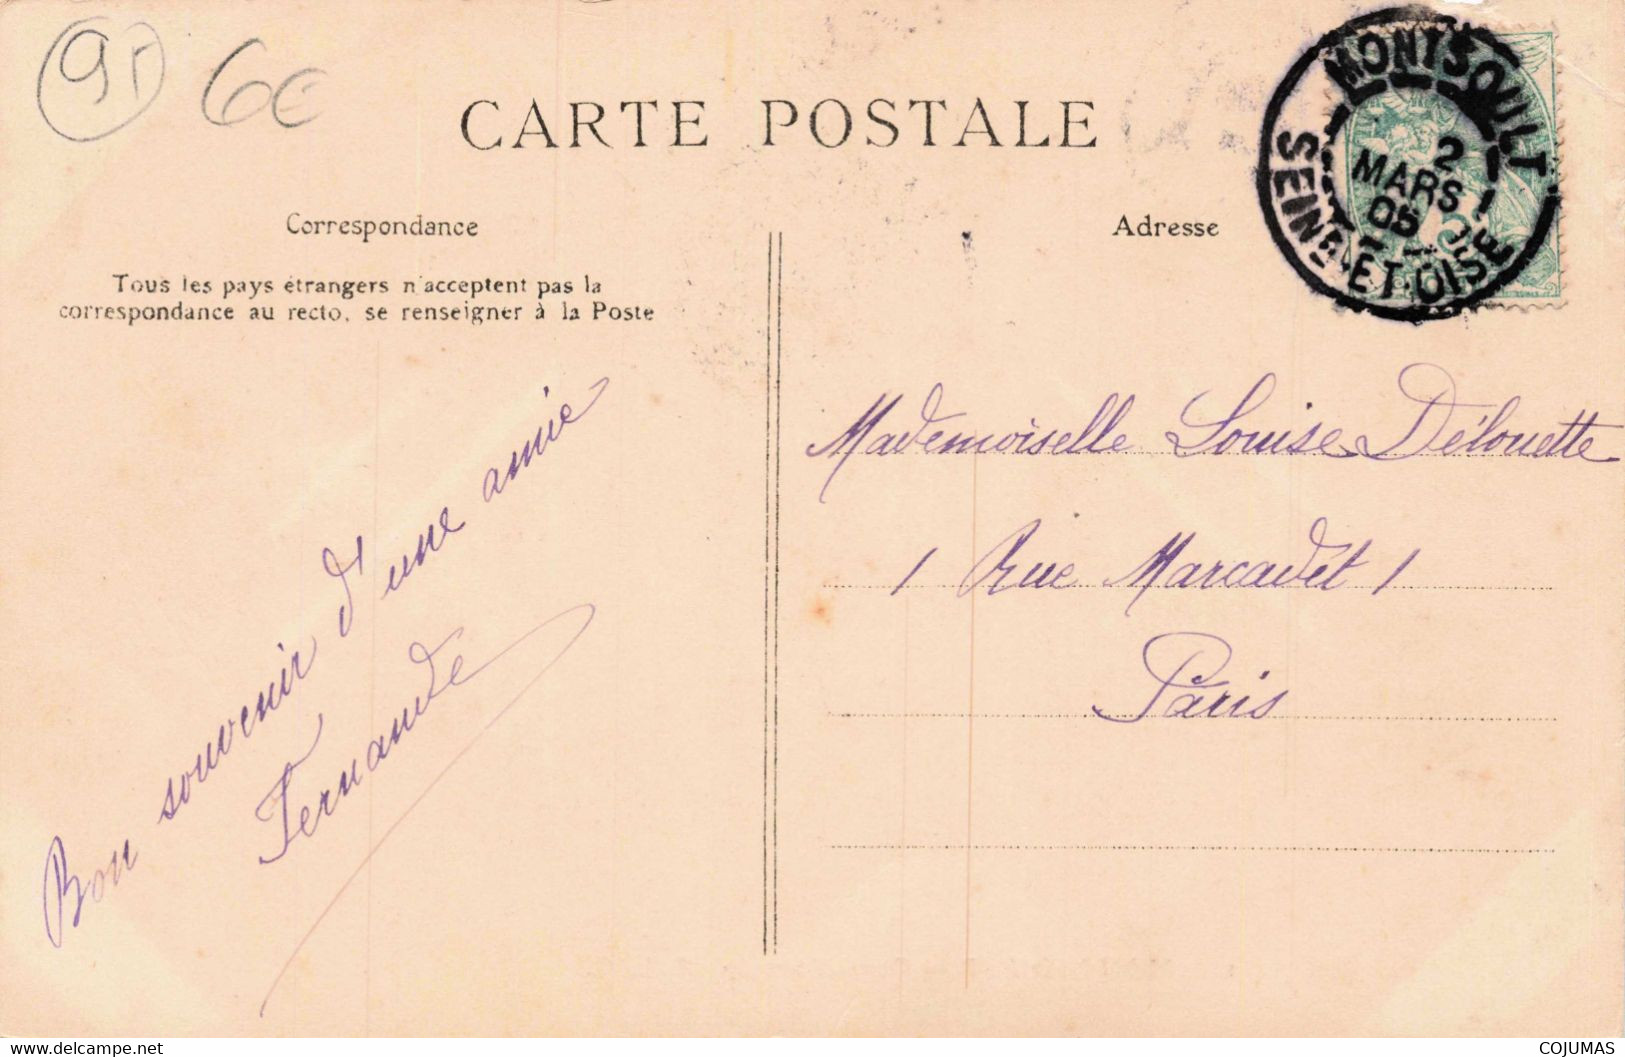 95 6€
CARTE POSTALE
MONTSOULT
2
MARS
05
SEINE-ET-OISE
Correspondance
Adresse
Tous les pays étrangers n'acceptent pas la
correspondance au recto, se renseigner à la Poste
Bon souvenir d'une amie
Fernande
Mademoiselle Louise Délouette
1 Rue Marcadet 1
Paris
www.delcampe.net
COJUMAS